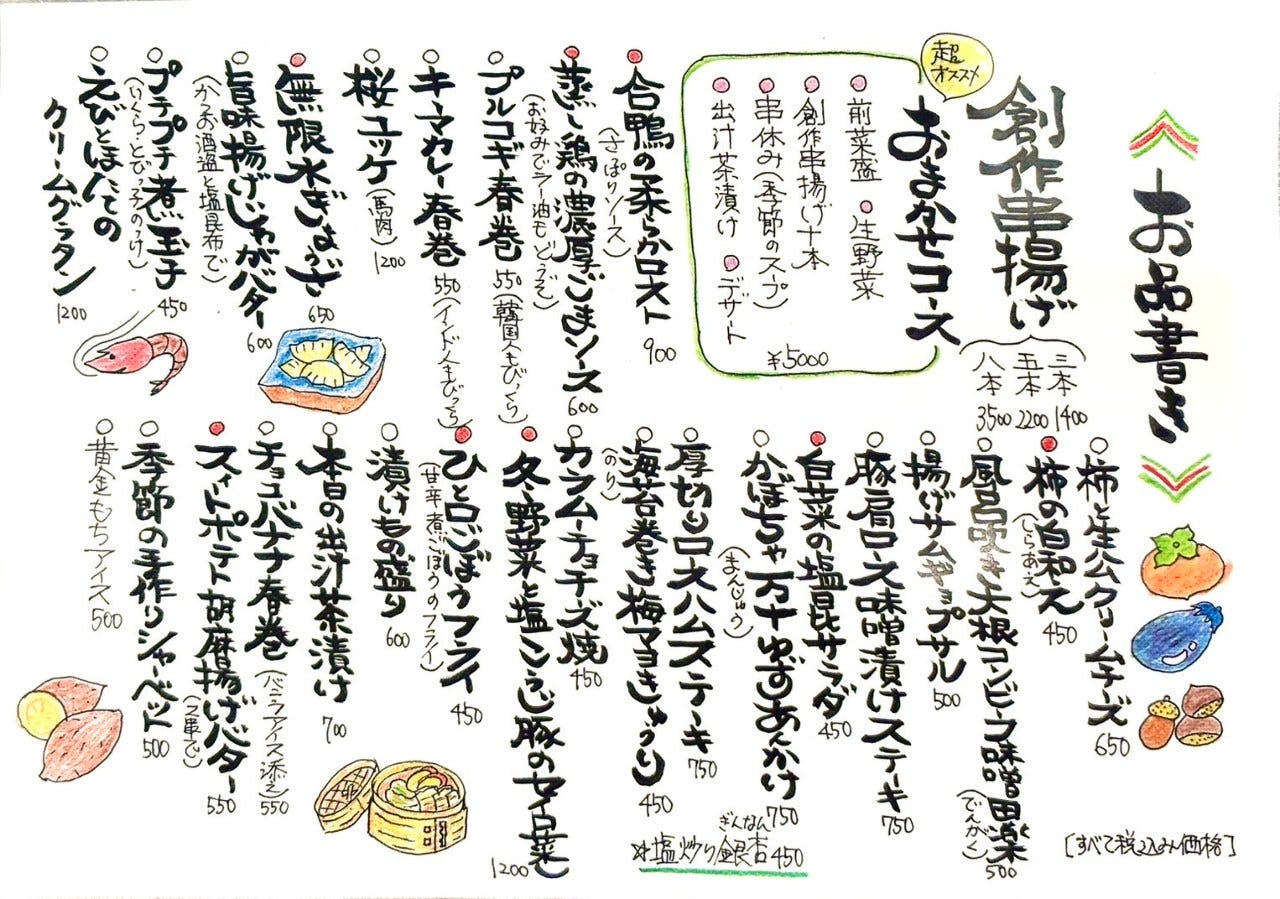 お品書き
創作串揚げ
三本 1400
五本 2200
八本 3500
超オススメ
おまかせコース
前菜盛
生野菜
創作串揚げ十本
串休み(季節のスープ)
出汁茶漬け
デザート
¥5000
合鴨の柔らかロースト
(さっぱりソース)
900
蒸し鶏の濃厚ごまソース
(お好みでラー油もどうぞ)
600
プルコギ春巻
550(韓国人もびっくり)
キーマカレー春巻
550(インド人もびっくり)
桜ユッケ(馬肉)
1200
無限水ぎょうざ
650
旨味揚げじゃがバター
(かつお酒盗と塩昆布で)
600
プチプチ煮玉子
(いくらとびっ子のっけ)
450
えびとほたての
クリームグラタン
1200
柿と生ハムクリームチーズ
650
柿の白和え
(しらあえ)
450
風呂吹き大根コンビーフ味噌田楽
(でんがく)
500
揚げサムギョプサル
500
豚肩ロース味噌漬けステーキ
750
白菜の塩昆サラダ
450
かぼちゃ万十ゆずあんかけ
(まんじゅう)
750
厚切りロースハムステーキ
750
海苔巻き梅マヨきゅうり
(のり)
450
ぎんなん
塩炒り銀杏 450
カラムーチョチーズ焼
450
冬野菜と塩こうじ豚のセイロ蒸
1200
ひと口ごぼうフライ
(甘辛煮ごぼうのフライ)
450
漬けもの盛り
600
本日の出汁茶漬け
700
チョコバナナ春巻
(バニラアイス添え)
550
スイートポテト胡麻揚げバター
(2串で)
550
季節の手作りシャーベット
500
黄金もちアイス
500
[すべて税込み価格]